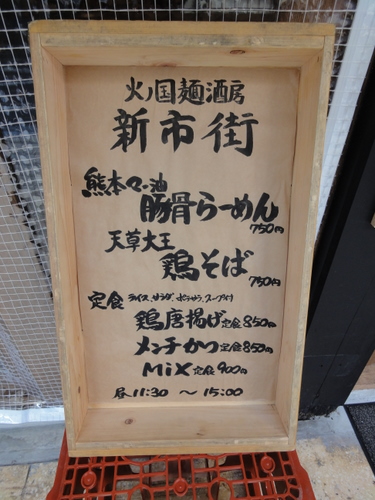 火ノ国麺酒房
新市街
熊本マー油
豚骨らーめん
750円
天草大王
鶏そば
750円
定食 ライス、サラダ、ポテサラ、スープ付
鶏唐揚げ定食850円
メンチかつ定食850円
MiX定食900円
昼11:30 〜 15:00